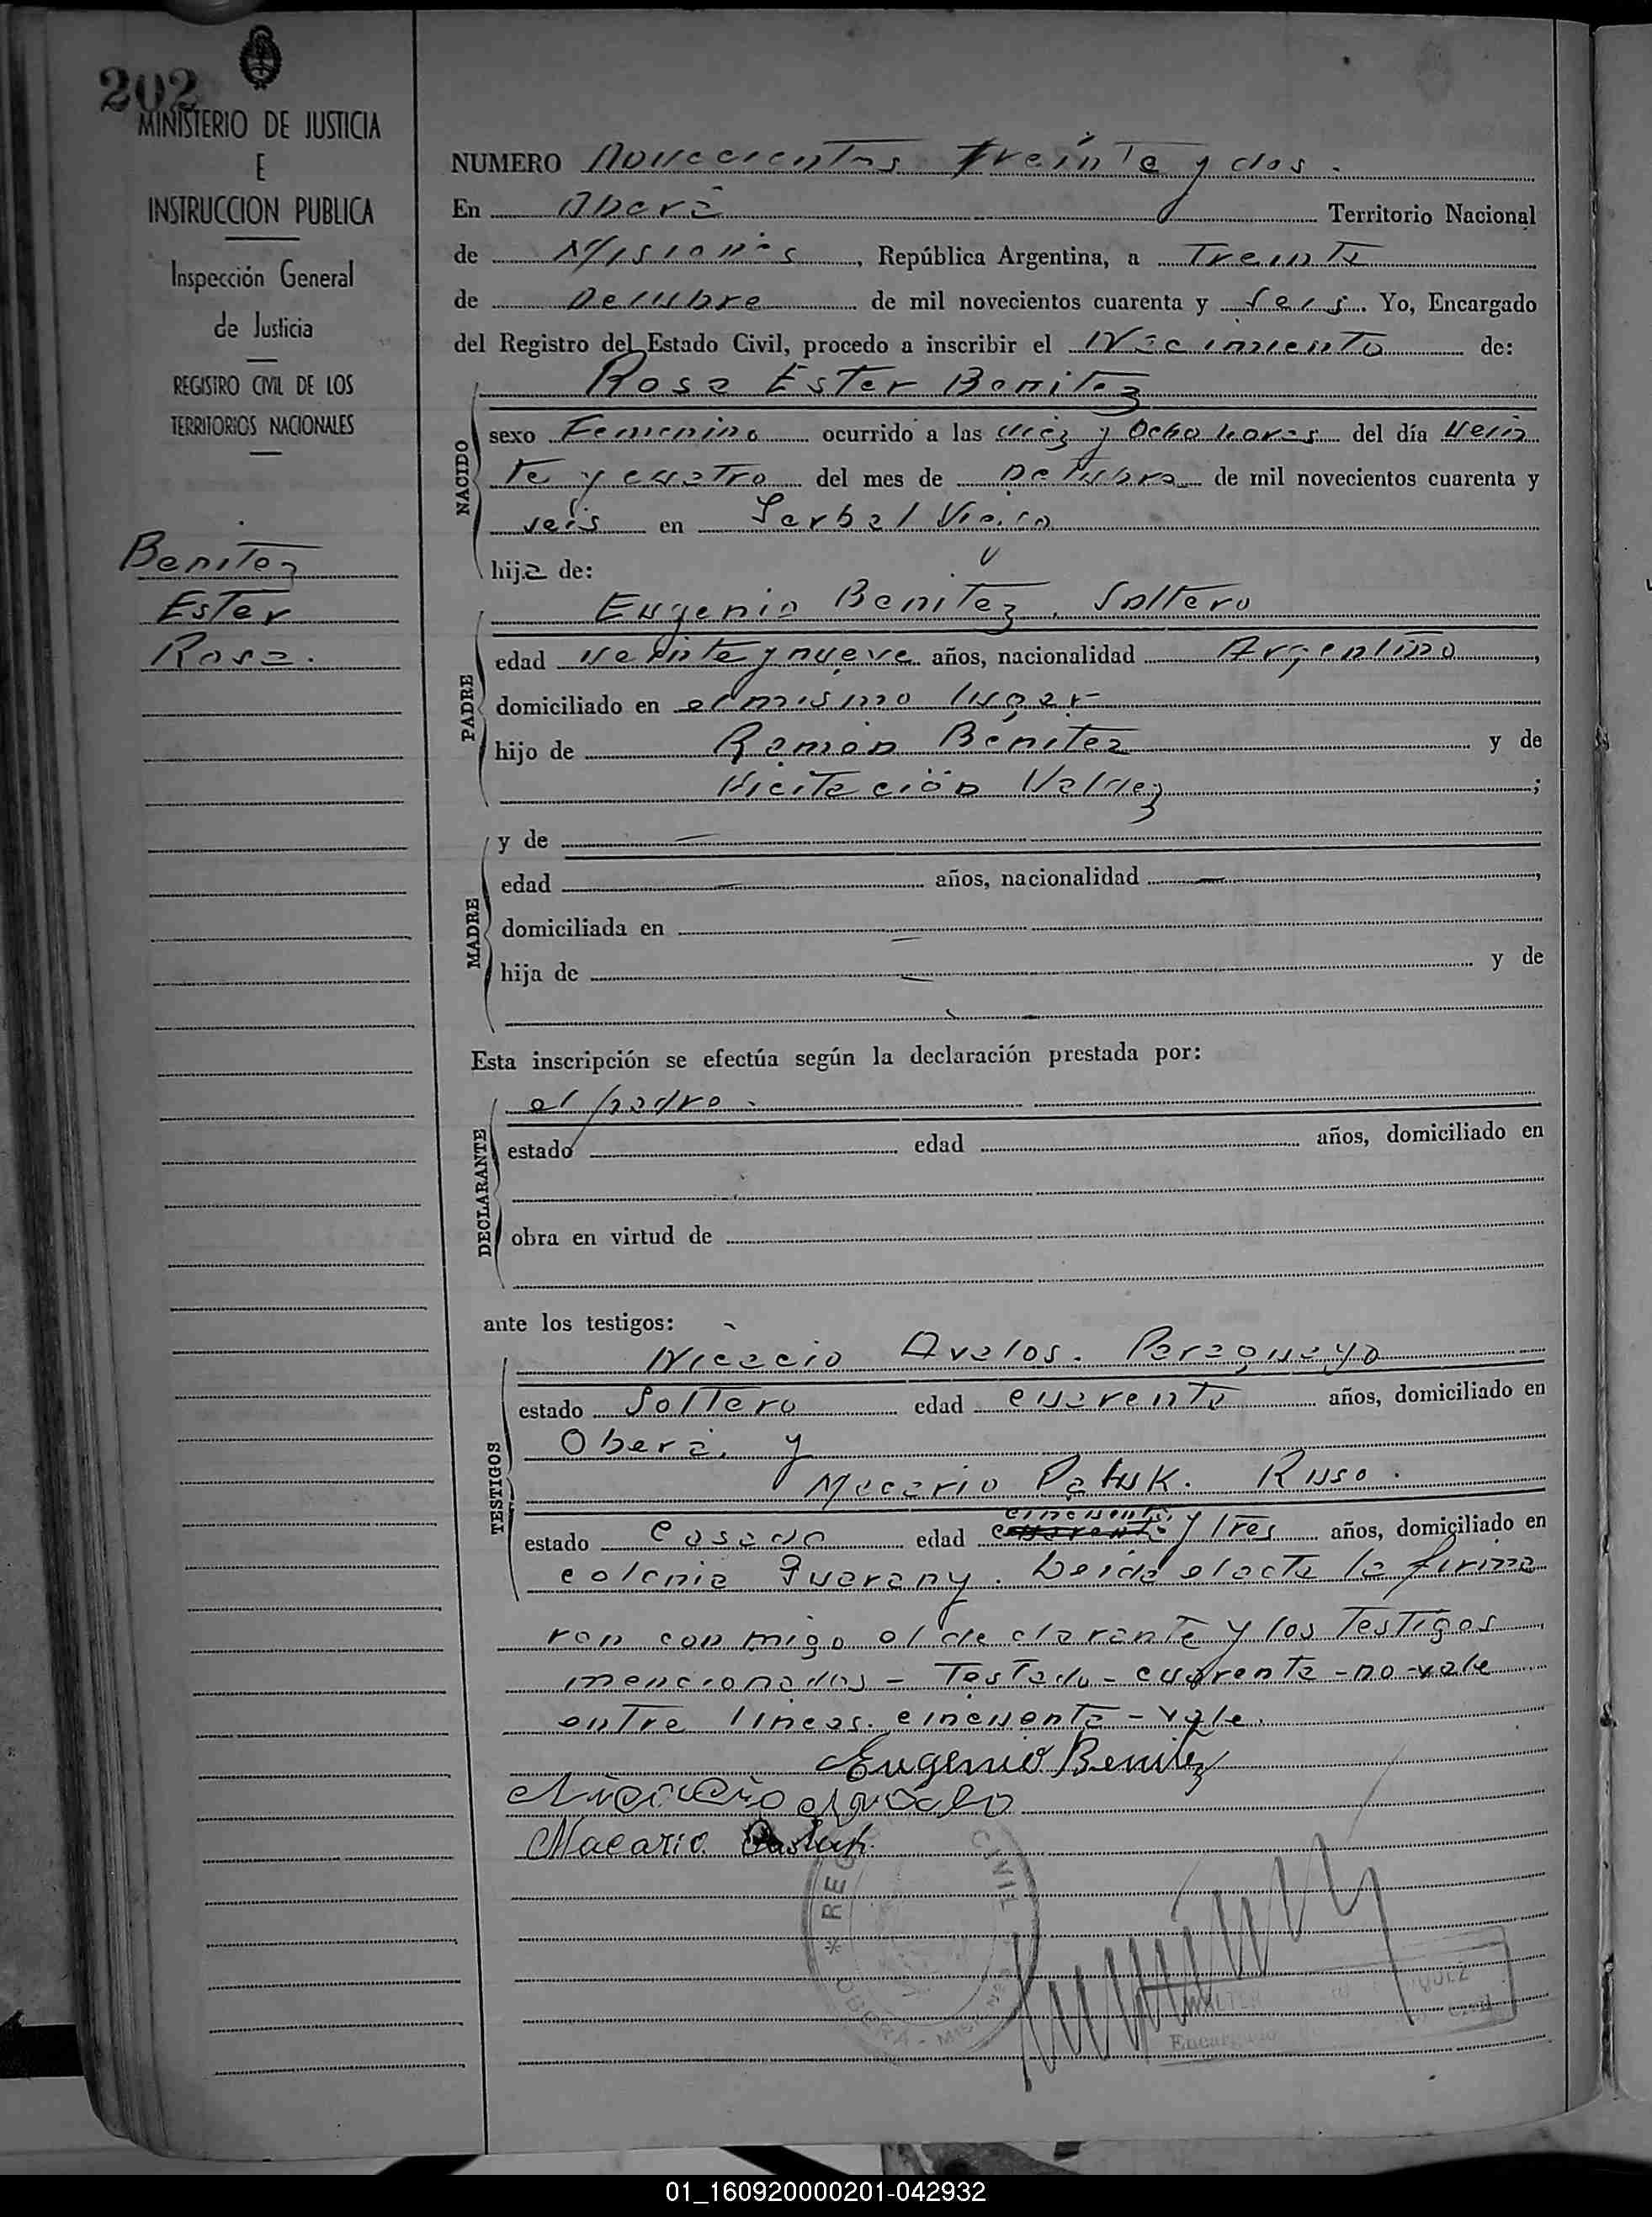 202
MINISTERIO DE JUSTICIA
E
INSTRUCCION PUBLICA
Inspección General
de Justicia
REGISTRO CIVIL DE LOS
TERRITORIOS NACIONALES
Benitez
Ester
Rosa.
NUMERO Novecientos Treinta y dos.
En Oberá Territorio Nacional
de Misiones, República Argentina, a Treinta
de Octubre de mil novecientos cuarenta y seis. Yo, Encargado
del Registro del Estado Civil, procedo a inscribir el Nacimiento de:
NACIDO
Rosa Ester Benitez
sexo Femenino ocurrido a las diez y Ocho horas del día vein
te y cuatro del mes de Octubre de mil novecientos cuarenta y
seis en Yerbal Viejo
hija de:
PADRE
Eugenio Benitez. Soltero
edad veinte y nueve años, nacionalidad Argentino,
domiciliado en el mismo lugar
hijo de Ramón Benitez y de
Vicitación Valdez;
MADRE
y de
edad años, nacionalidad,
domiciliada en
hija de y de
Esta inscripción se efectúa según la declaración prestada por:
DECLARANTE
el padre.
estado edad años, domiciliado en
obra en virtud de
ante los testigos:
TESTIGOS
Nicacio Avalos. Paraguayo
estado Soltero edad cuarenta años, domiciliado en
Oberá, y
Macario Patuk. Ruso.
cincuenta
estado Casado edad cuarenta y tres años, domiciliado en
colonia Guarany. Leida el acta la firma
ron con migo el declarante y los Testigos
mencionados - Testado - cuarenta - no - vale
entre lineas. cincuenta - vale.
Eugenio Benitez
Macario
REG CIVIL
OBERA - MISIONES
WALTER
Encargado Civil
01_160920000201-042932